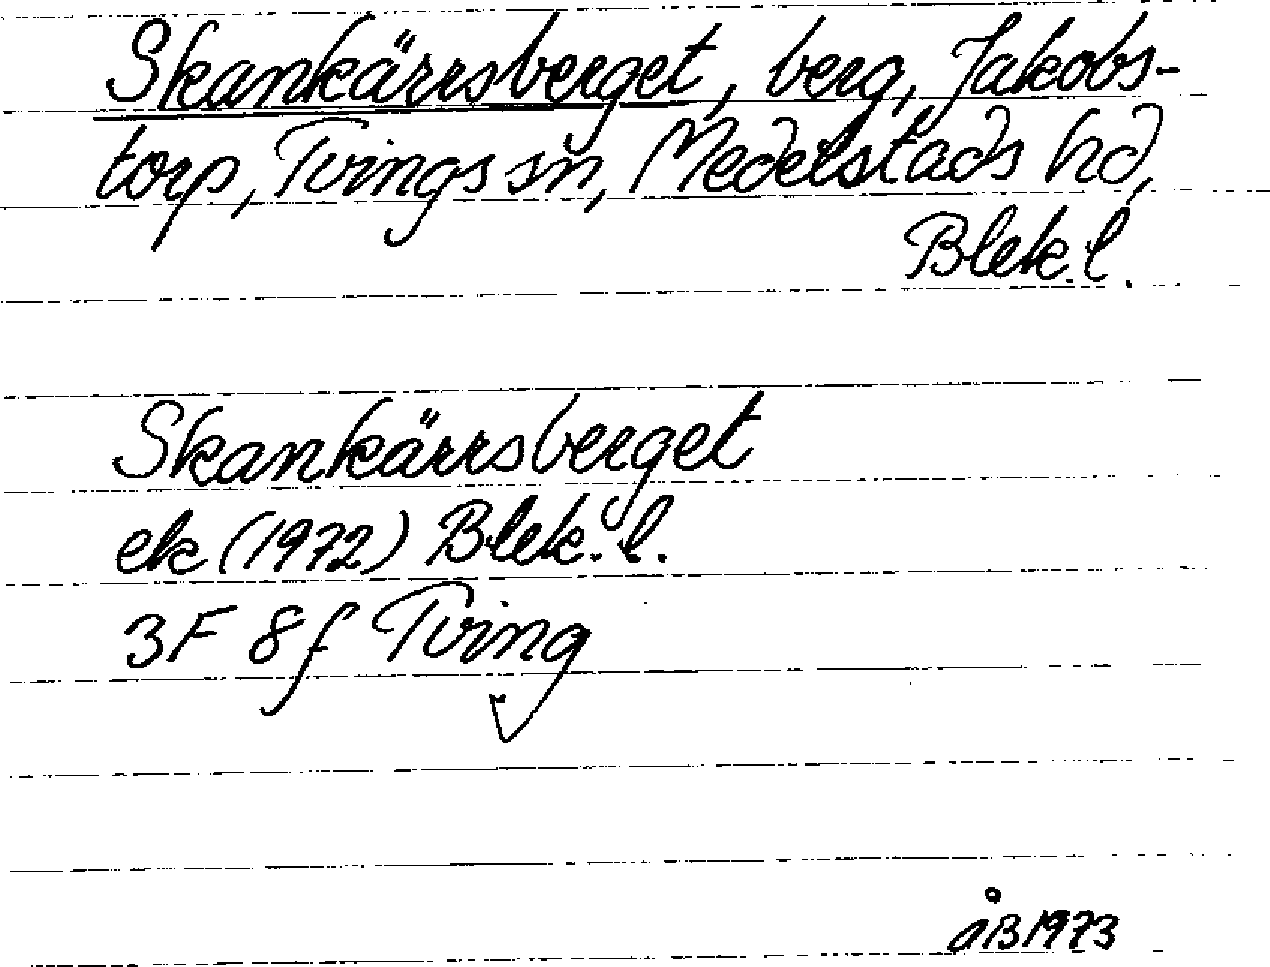 Skankärrsberget, berg, Jakobs-
torp, Tvings sn, Medelstads hd,
Blek. l.
Skankärrsberget
ek (1972) Blek. l.
3F 8f Tving
åB 1973